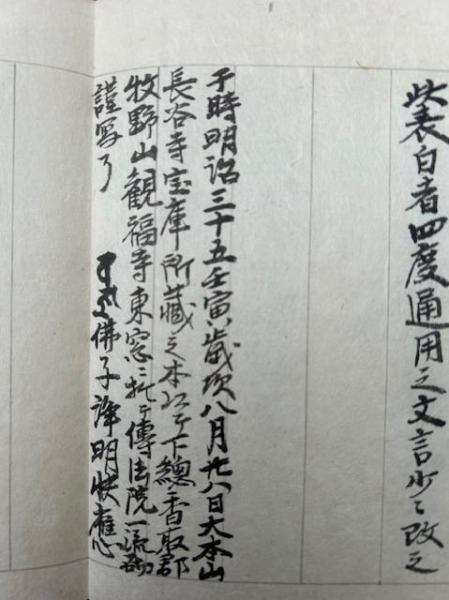 此表白者四度通用之文言少々改之
于時明治三十五壬寅歳次八月廿八日大本山
長谷寺宝庫所蔵之本以テ下總香取郡
牧野山観福寺東窓ニ於テ傳法院一流
謹写了 佛子諱明快應